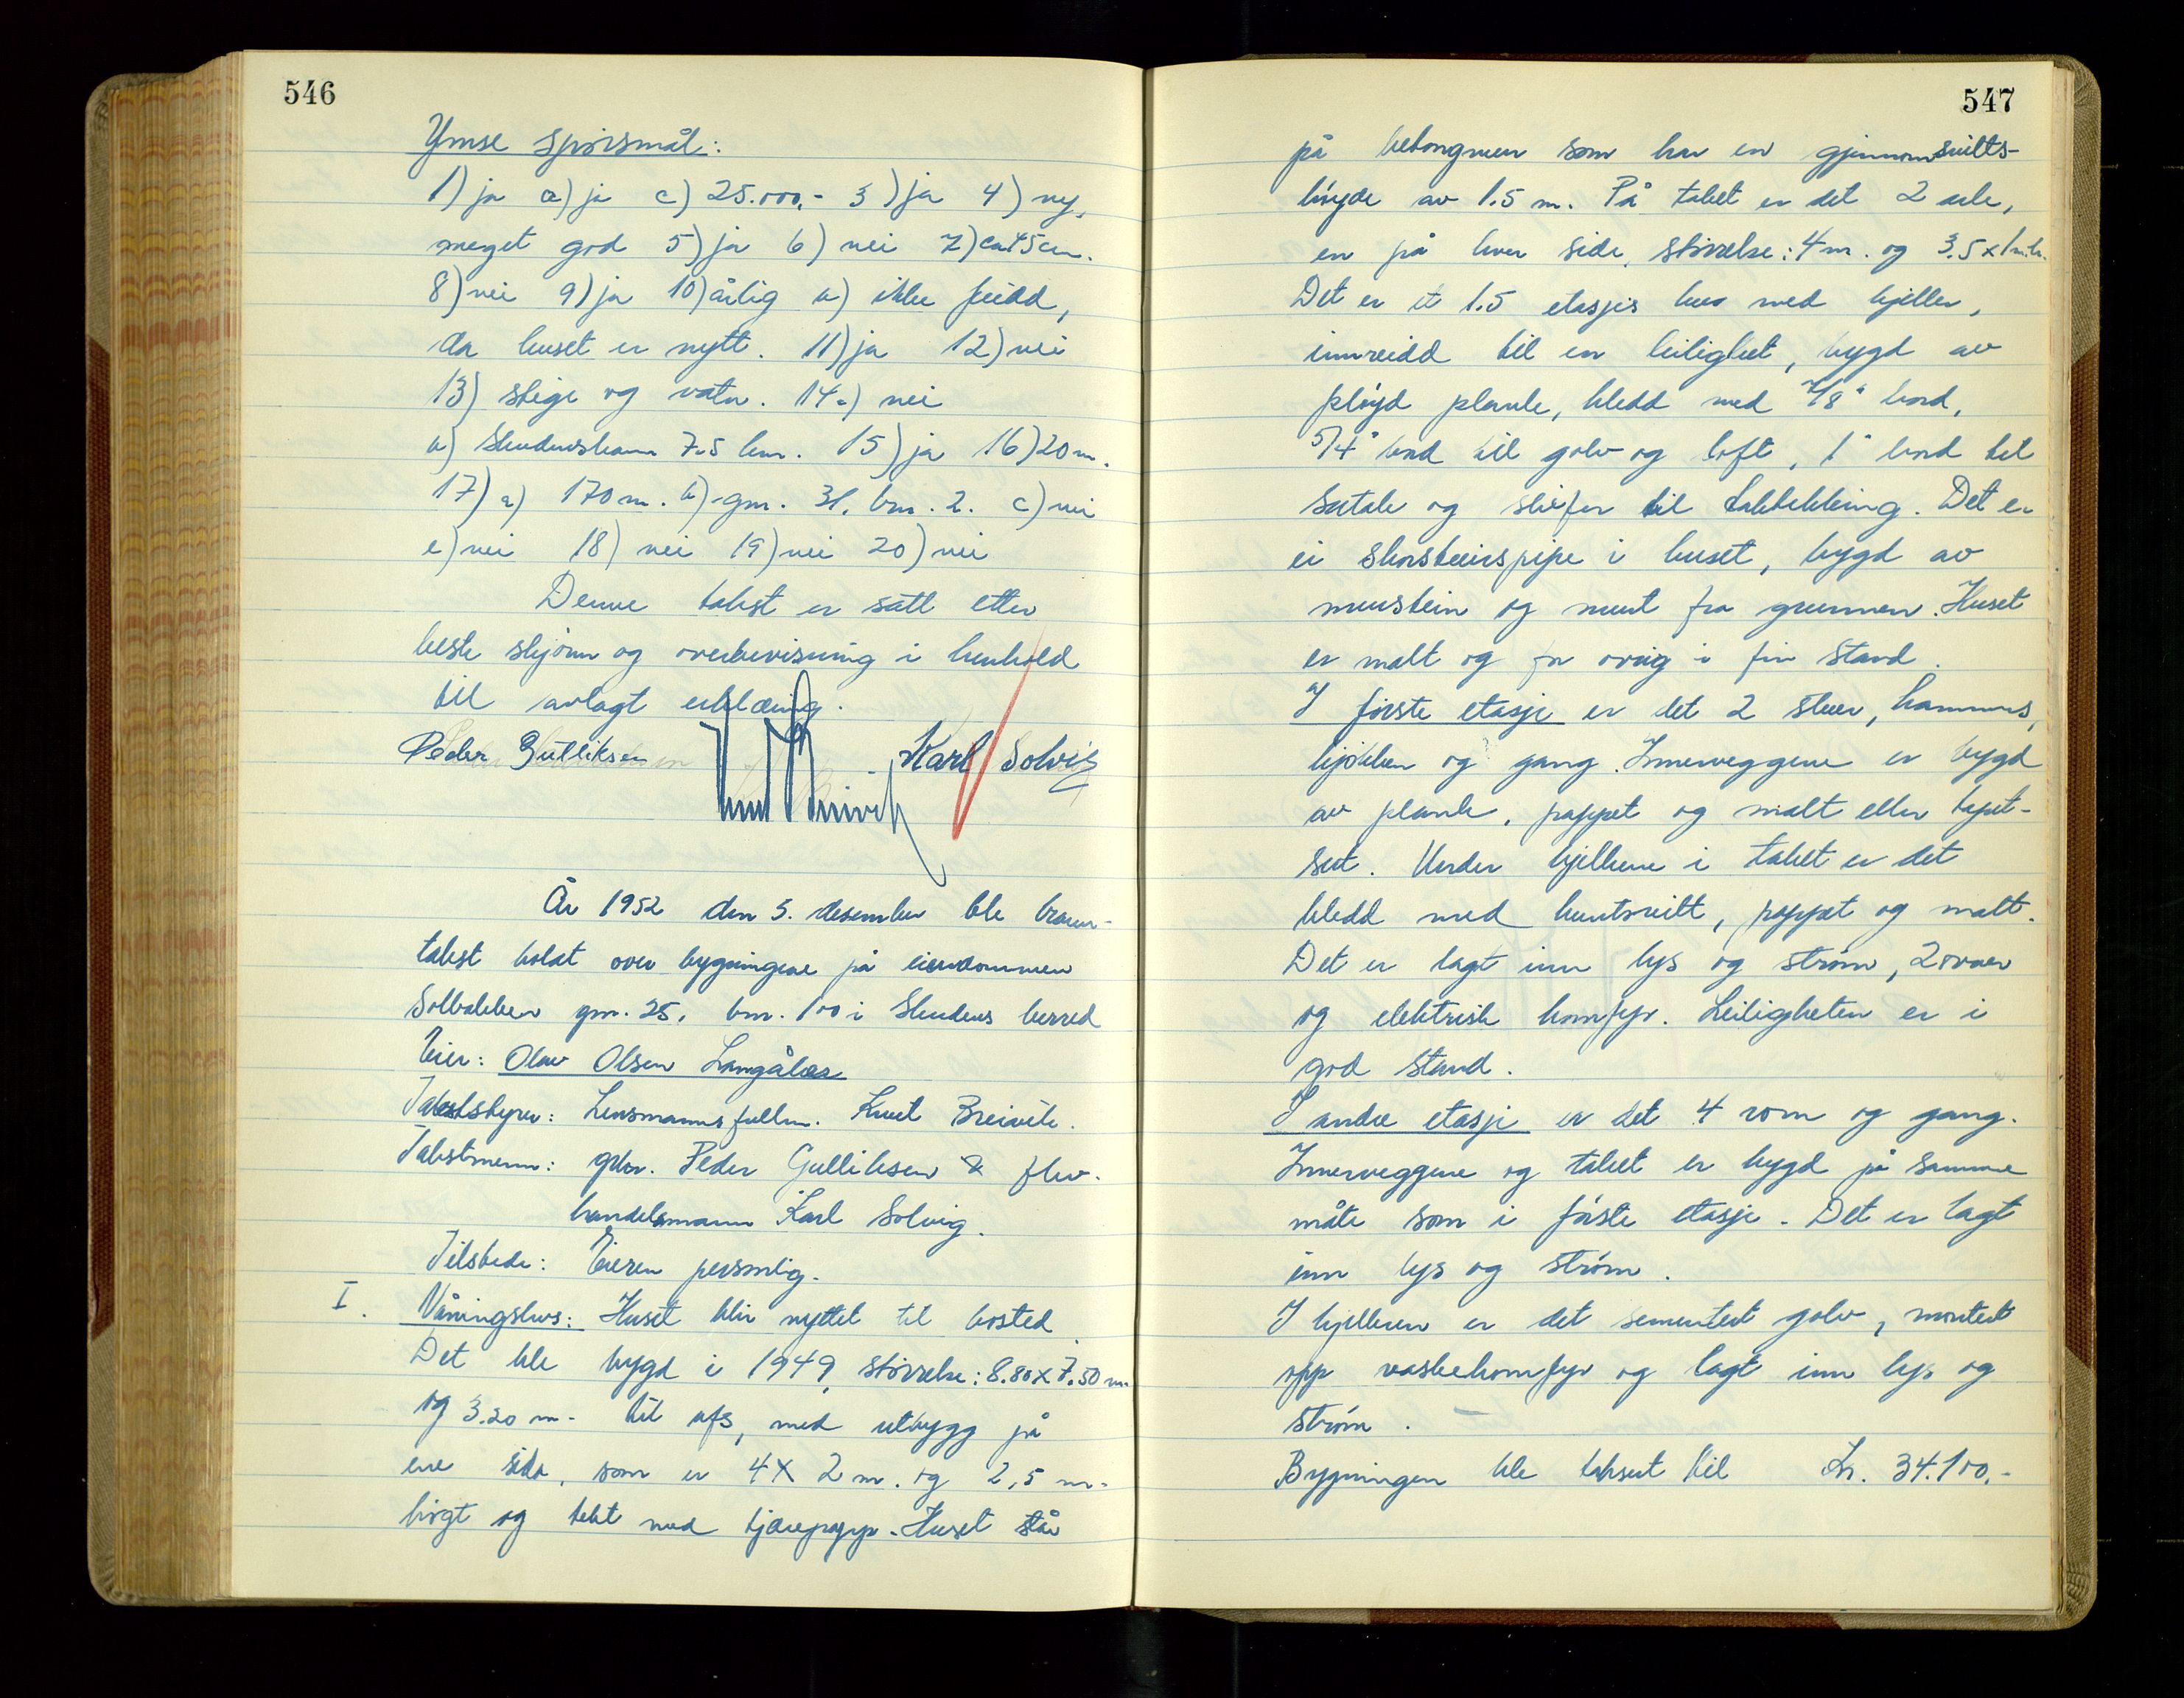 546
Ymse spörsmål:
1) ja a) ja c) 25.000,- 3) ja 4) ny,
meget god 5) ja 6) nei 7) ca 45 cm.
8) nei 9) ja 10) årlig a) ikke feidd,
da huset er nytt. 11) ja 12) nei
13) stige og vatn. 14a) nei
b) Skudeneshavn 7.5 km. 15) ja 16) 20 m.
17) a) 170 m. b) gnr. 31, bnr. 2. c) nei
e) nei 18) nei 19) nei 20) nei
Denne takst er satt etter
beste skjönn og overbevisning i henhold
til avlagt erklæring.
Peder Gulliksen Knut Breivik Karl Solvig
År 1952 den 5. desember ble brann-
takst holdt over bygningene på eiendommen
Solbakken gnr. 25, bnr. 100 i Skudenes herred
Eier: Olav Olsen Langåker
Takststyrer: Lensmannsfullm. Knut Breivik.
Takstmenn: gbr. Peder Gulliksen & fhv.
handelsmann Karl Solvig.
Tilstede: Eieren personlig.
I. Våningshus: Huset blir nyttet til bosted.
Det ble bygd i 1949, störrelse: 8.80 x 7.50 m.
og 3.20 m. til ufs, med utbygg på
ene sida, som er 4 x 2 m. og 2,5 m.
högt og tekt med tjærepapp. Huset står
547
på betongmur som har en gjennomsnitts-
höyde av 1.5 m. På taket er det 2 arker,
en på hver side, störrelse: 4 m. og 3.5 x 1 m.h.
Det er et 1.5 etasjes hus med kjeller,
innreidd til en leilighet, bygd av
plöyd planke, kledd med 7/8" bord,
5/4" bord til golv og loft, 1" bord til
sutak og skifer til taktekking. Det er
ei skorsteinspipe i huset, bygd av
murstein og murt fra grunnen. Huset
er malt og for övrig i fin stand.
I förste etasje er det 2 stuer, kammers,
kjökken og gang. Innerveggene er bygd
av planke, pappet og malt eller tapet-
sert. Under bjelkene i taket er det
kledd med huntonitt, pappet og malt.
Det er lagt inn lys og ström, 2 ovner
og elektrisk komfyr. Leiligheten er i
god stand.
I andre etasje er det 4 rom og gang.
Innerveggene og taket er bygd på samme
måte som i förste etasje. Det er lagt
inn lys og ström.
I kjelleren er det sementert golv, montert
opp vaskekomfyr og lagt inn lys og
ström.
Bygningen ble taksert til Kr. 34.100,-